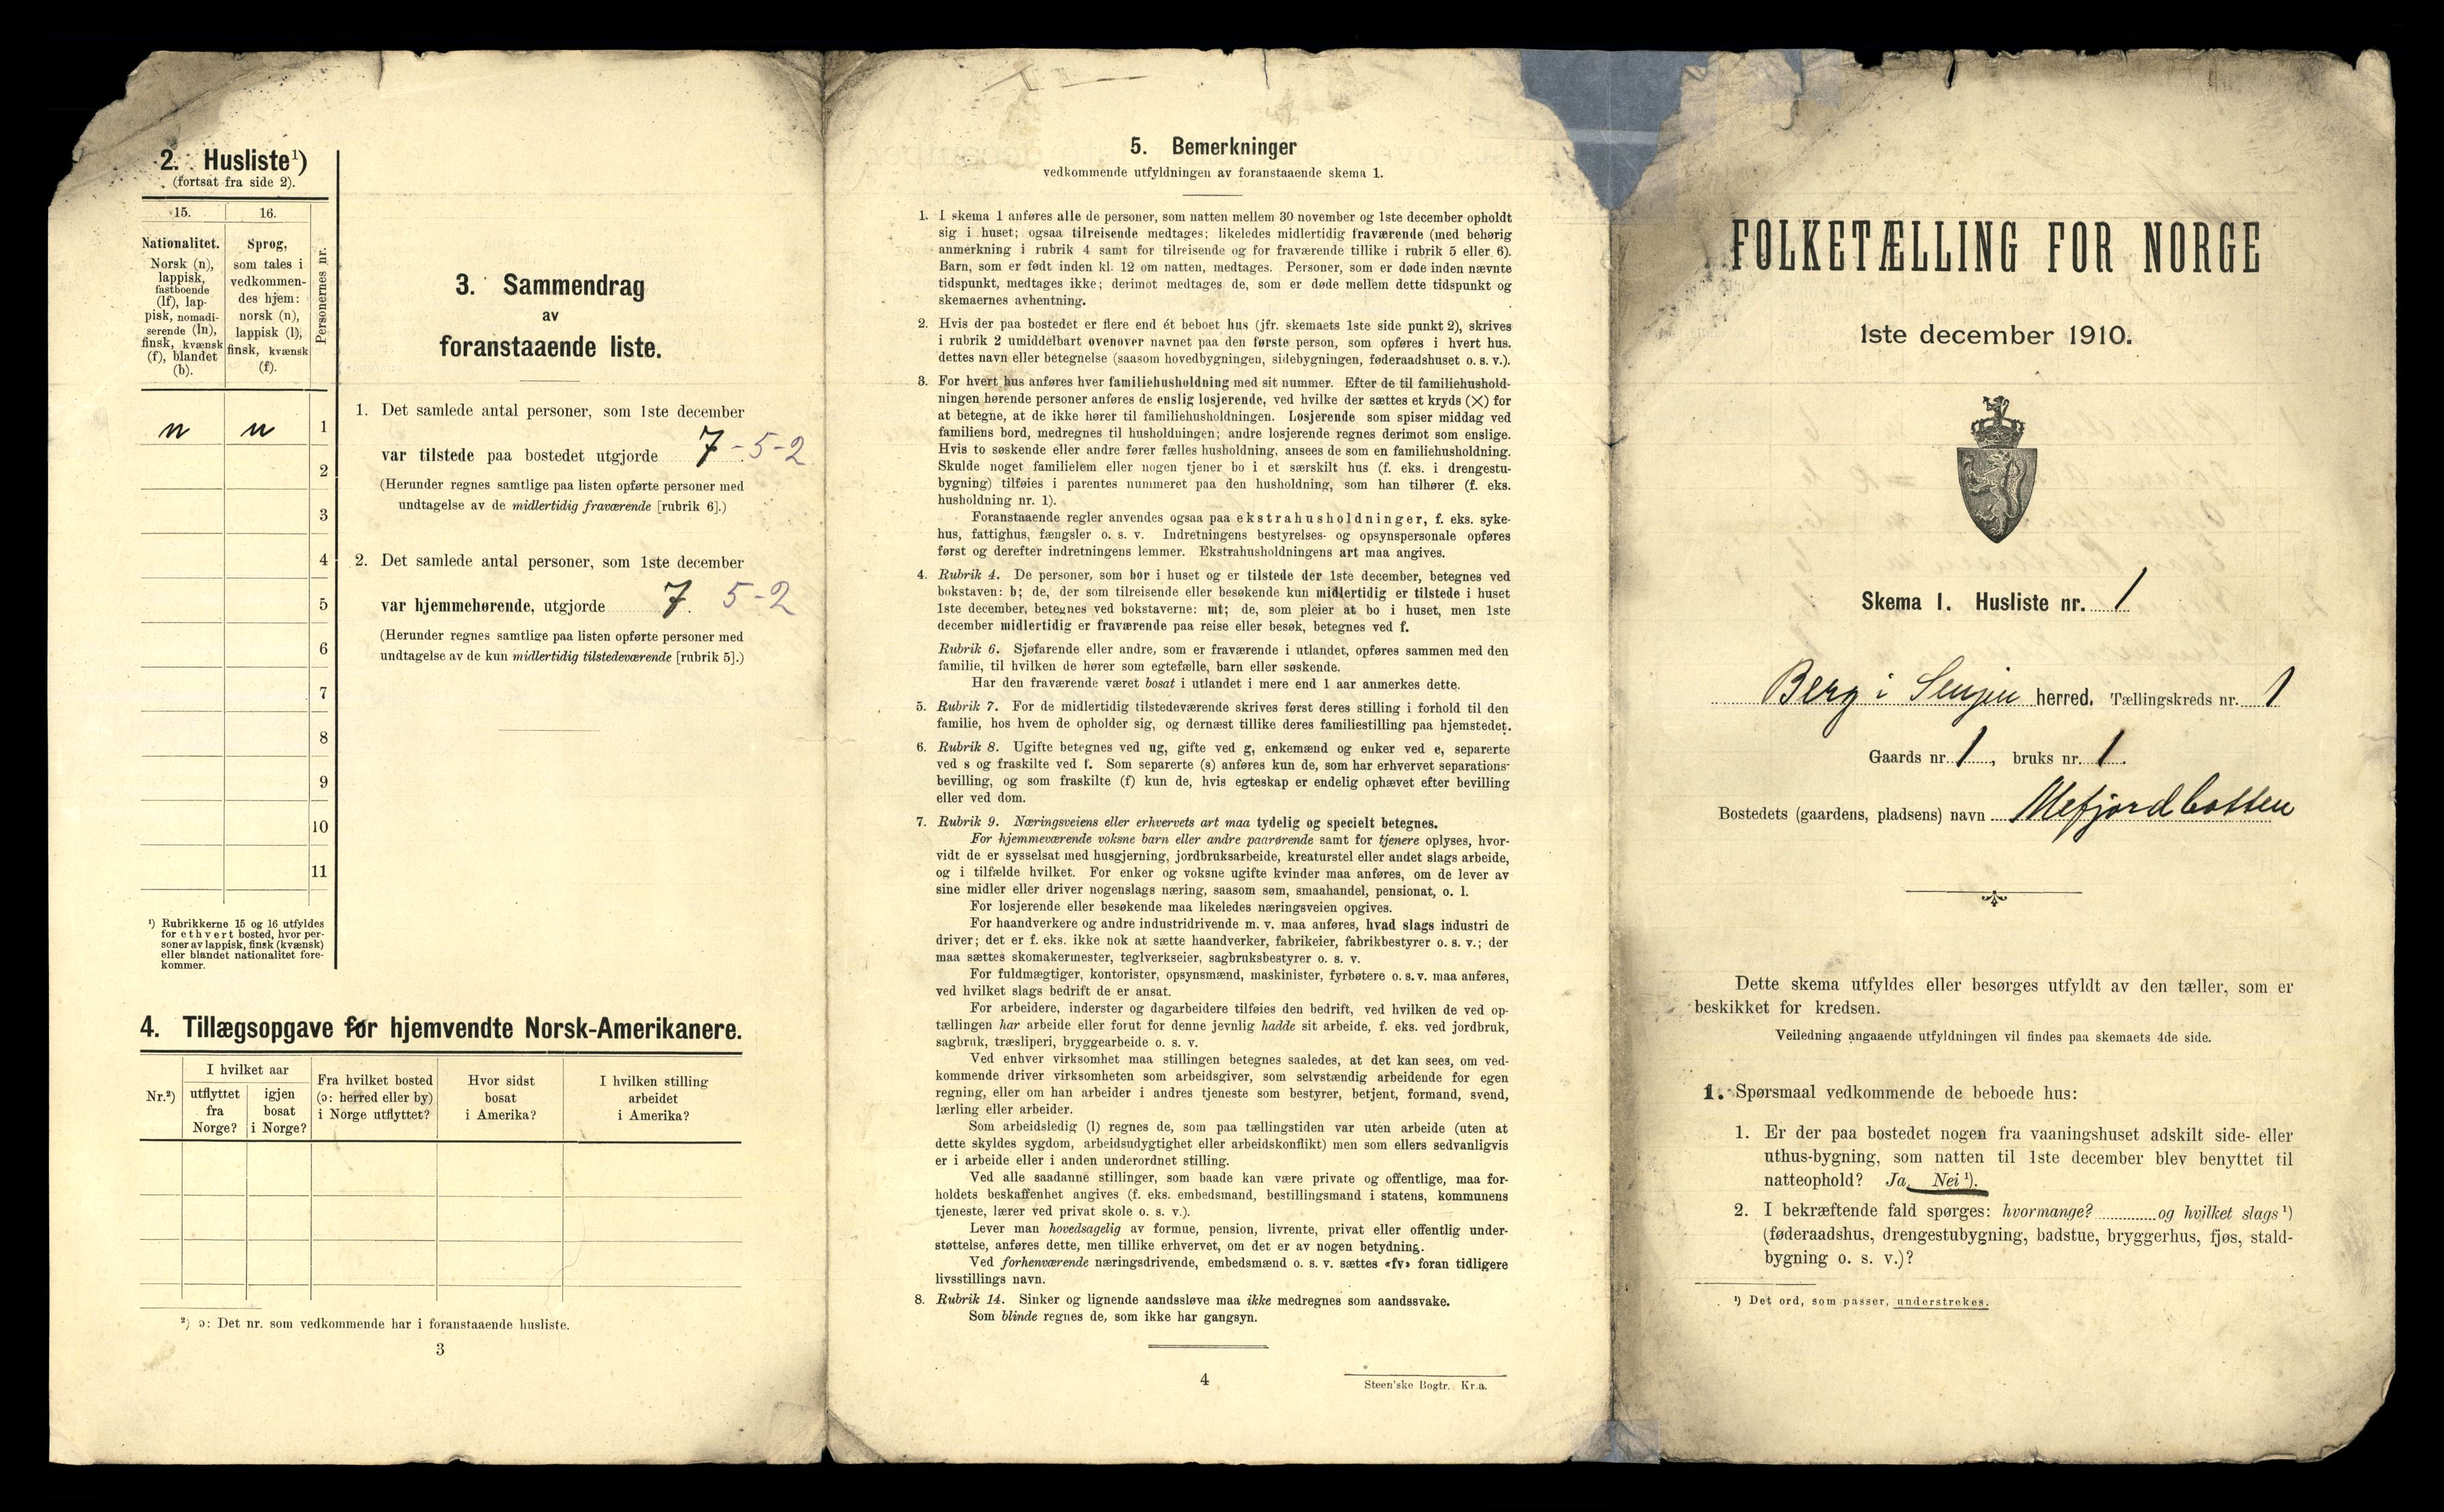 2. Husliste¹)
(fortsat fra side 2).
15.
16.
Nationalitet.
Norsk (n),
lappisk,
fastboende
(lf), lap-
pisk, nomadi-
serende (ln),
finsk, kvænsk
(f), blandet
(b).
Sprog,
som tales i
vedkommen-
des hjem:
norsk (n),
lappisk (l),
finsk, kvænsk
(f).
Personernes nr.
n n 1
2
3
4
5
6
7
8
9
10
11
¹) Rubrikkerne 15 og 16 utfyldes
for ethvert bosted, hvor per-
soner av lappisk, finsk (kvænsk)
eller blandet nationalitet fore-
kommer.
3. Sammendrag
av
foranstaaende liste.
1. Det samlede antal personer, som 1ste december
var tilstede paa bostedet utgjorde 7-5-2
(Herunder regnes samtlige paa listen opførte personer med
undtagelse av de midlertidig fraværende [rubrik 6].)
2. Det samlede antal personer, som 1ste december
var hjemmehørende, utgjorde 7. 5-2
(Herunder regnes samtlige paa listen opførte personer med
undtagelse av de kun midlertidig tilstedeværende [rubrik 5].)
4. Tillægsopgave for hjemvendte Norsk-Amerikanere.
Nr.²)
I hvilket aar
utflyttet
fra
Norge?
igjen
bosat
i Norge?
Fra hvilket bosted
(ɔ: herred eller by)
i Norge utflyttet?
Hvor sidst
bosat
i Amerika?
I hvilken stilling
arbeidet
i Amerika?
²) ɔ: Det nr. som vedkommende har i foranstaaende husliste.
3
5. Bemerkninger
vedkommende utfyldningen av foranstaaende skema 1.
1. I skema 1 anføres alle de personer, som natten mellem 30 november og 1ste december opholdt
sig i huset; ogsaa tilreisende medtages; likeledes midlertidig fraværende (med behørig
anmerkning i rubrik 4 samt for tilreisende og for fraværende tillike i rubrik 5 eller 6).
Barn, som er født inden kl. 12 om natten, medtages. Personer, som er døde inden nævnte
tidspunkt, medtages ikke; derimot medtages de, som er døde mellem dette tidspunkt og
skemaernes avhentning.
2. Hvis der paa bostedet er flere end ét beboet hus (jfr. skemaets 1ste side punkt 2), skrives
i rubrik 2 umiddelbart ovenover navnet paa den første person, som opføres i hvert hus.
dettes navn eller betegnelse (saasom hovedbygningen, sidebygningen, føderaadshuset o. s. v.).
3. For hvert hus anføres hver familiehusholdning med sit nummer. Efter de til familiehushold-
ningen hørende personer anføres de enslig losjerende, ved hvilke der sættes et kryds (×) for
at betegne, at de ikke hører til familiehusholdningen. Losjerende som spiser middag ved
familiens bord, medregnes til husholdningen; andre losjerende regnes derimot som enslige.
Hvis to søskende eller andre fører fælles husholdning, ansees de som en familiehusholdning.
Skulde noget familielem eller nogen tjener bo i et særskilt hus (f. eks. i drengestu-
bygning) tilføies i parentes nummeret paa den husholdning, som han tilhører (f. eks.
husholdning nr. 1).
Foranstaaende regler anvendes ogsaa paa ekstrahusholdninger, f. eks. syke-
hus, fattighus, fængsler o. s. v. Indretningens bestyrelses- og opsynspersonale opføres
først og derefter indretningens lemmer. Ekstrahusholdningens art maa angives.
4. Rubrik 4. De personer, som bor i huset og er tilstede der 1ste december, betegnes ved
bokstaven: b; de, der som tilreisende eller besøkende kun midlertidig er tilstede i huset
1ste december, betegnes ved bokstaverne: mt; de, som pleier at bo i huset, men 1ste
december midlertidig er fraværende paa reise eller besøk, betegnes ved f.
Rubrik 6. Sjøfarende eller andre, som er fraværende i utlandet, opføres sammen med den
familie, til hvilken de hører som egtefælle, barn eller søskende.
Har den fraværende været bosat i utlandet i mere end 1 aar anmerkes dette.
5. Rubrik 7. For de midlertidig tilstedeværende skrives først deres stilling i forhold til den
familie, hos hvem de opholder sig, og dernæst tillike deres familiestilling paa hjemstedet.
6. Rubrik 8. Ugifte betegnes ved ug, gifte ved g, enkemænd og enker ved e, separerte
ved s og fraskilte ved f. Som separerte (s) anføres kun de, som har erhvervet separations-
bevilling, og som fraskilte (f) kun de, hvis egteskap er endelig ophævet efter bevilling
eller ved dom.
7. Rubrik 9. Næringsveiens eller erhvervets art maa tydelig og specielt betegnes.
For hjemmeværende voksne barn eller andre paarørende samt for tjenere oplyses, hvor-
vidt de er sysselsat med husgjerning, jordbruksarbeide, kreaturstel eller andet slags arbeide,
og i tilfælde hvilket. For enker og voksne ugifte kvinder maa anføres, om de lever av
sine midler eller driver nogenslags næring, saasom søm, smaahandel, pensionat, o. l.
For losjerende eller besøkende maa likeledes næringsveien opgives.
For haandverkere og andre industridrivende m. v. maa anføres, hvad slags industri de
driver; det er f. eks. ikke nok at sætte haandverker, fabrikeier, fabrikbestyrer o. s. v.; der
maa sættes skomakermester, teglverkseier, sagbruksbestyrer o. s. v.
For fuldmægtiger, kontorister, opsynsmænd, maskinister, fyrbøtere o. s. v. maa anføres,
ved hvilket slags bedrift de er ansat.
For arbeidere, inderster og dagarbeidere tilføies den bedrift, ved hvilken de ved op-
tællingen har arbeide eller forut for denne jevnlig hadde sit arbeide, f. eks. ved jordbruk,
sagbruk, træsliperi, bryggearbeide o. s. v.
Ved enhver virksomhet maa stillingen betegnes saaledes, at det kan sees, om ved-
kommende driver virksomheten som arbeidsgiver, som selvstændig arbeidende for egen
regning, eller om han arbeider i andres tjeneste som bestyrer, betjent, formand, svend,
lærling eller arbeider.
Som arbeidsledig (l) regnes de, som paa tællingstiden var uten arbeide (uten at
dette skyldes sygdom, arbeidsudygtighet eller arbeidskonflikt) men som ellers sedvanligvis
er i arbeide eller i anden underordnet stilling.
Ved alle saadanne stillinger, som baade kan være private og offentlige, maa for-
holdets beskaffenhet angives (f. eks. embedsmand, bestillingsmand i statens, kommunens
tjeneste, lærer ved privat skole o. s. v.).
Lever man hovedsagelig av formue, pension, livrente, privat eller offentlig under-
støttelse, anføres dette, men tillike erhvervet, om det er av nogen betydning.
Ved forhenværende næringsdrivende, embedsmænd o. s. v. sættes «fv» foran tidligere
livsstillings navn.
8. Rubrik 14. Sinker og lignende aandssløve maa ikke medregnes som aandssvake.
Som blinde regnes de, som ikke har gangsyn.
4
Steen'ske Bogtr. Kr.a.
FOLKETÆLLING FOR NORGE
1ste december 1910.
Skema 1. Husliste nr. 1
Berg i Senjen herred. Tællingskreds nr. 1
Gaards nr. 1, bruks nr. 1.
Bostedets (gaardens, pladsens) navn Mefjordbotten
Dette skema utfyldes eller besørges utfyldt av den tæller, som er
beskikket for kredsen.
Veiledning angaaende utfyldningen vil findes paa skemaets 4de side.
1. Spørsmaal vedkommende de beboede hus:
1. Er der paa bostedet nogen fra vaaningshuset adskilt side- eller
uthus-bygning, som natten til 1ste december blev benyttet til
natteophold? Ja. Nei ¹).
2. I bekræftende fald spørges: hvormange? og hvilket slags ¹)
(føderaadshus, drengestubygning, badstue, bryggerhus, fjøs, stald-
bygning o. s. v.)?
¹) Det ord, som passer, understrekes.